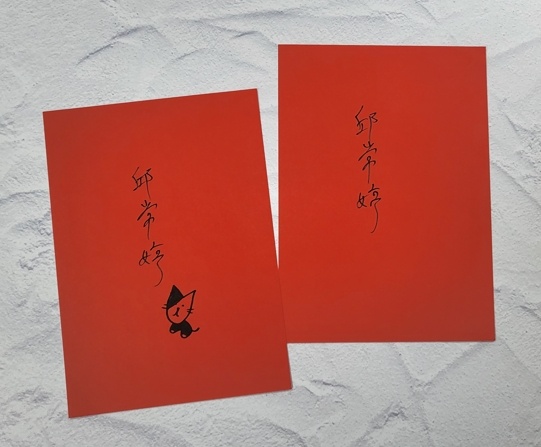 邱常婷
邱常婷